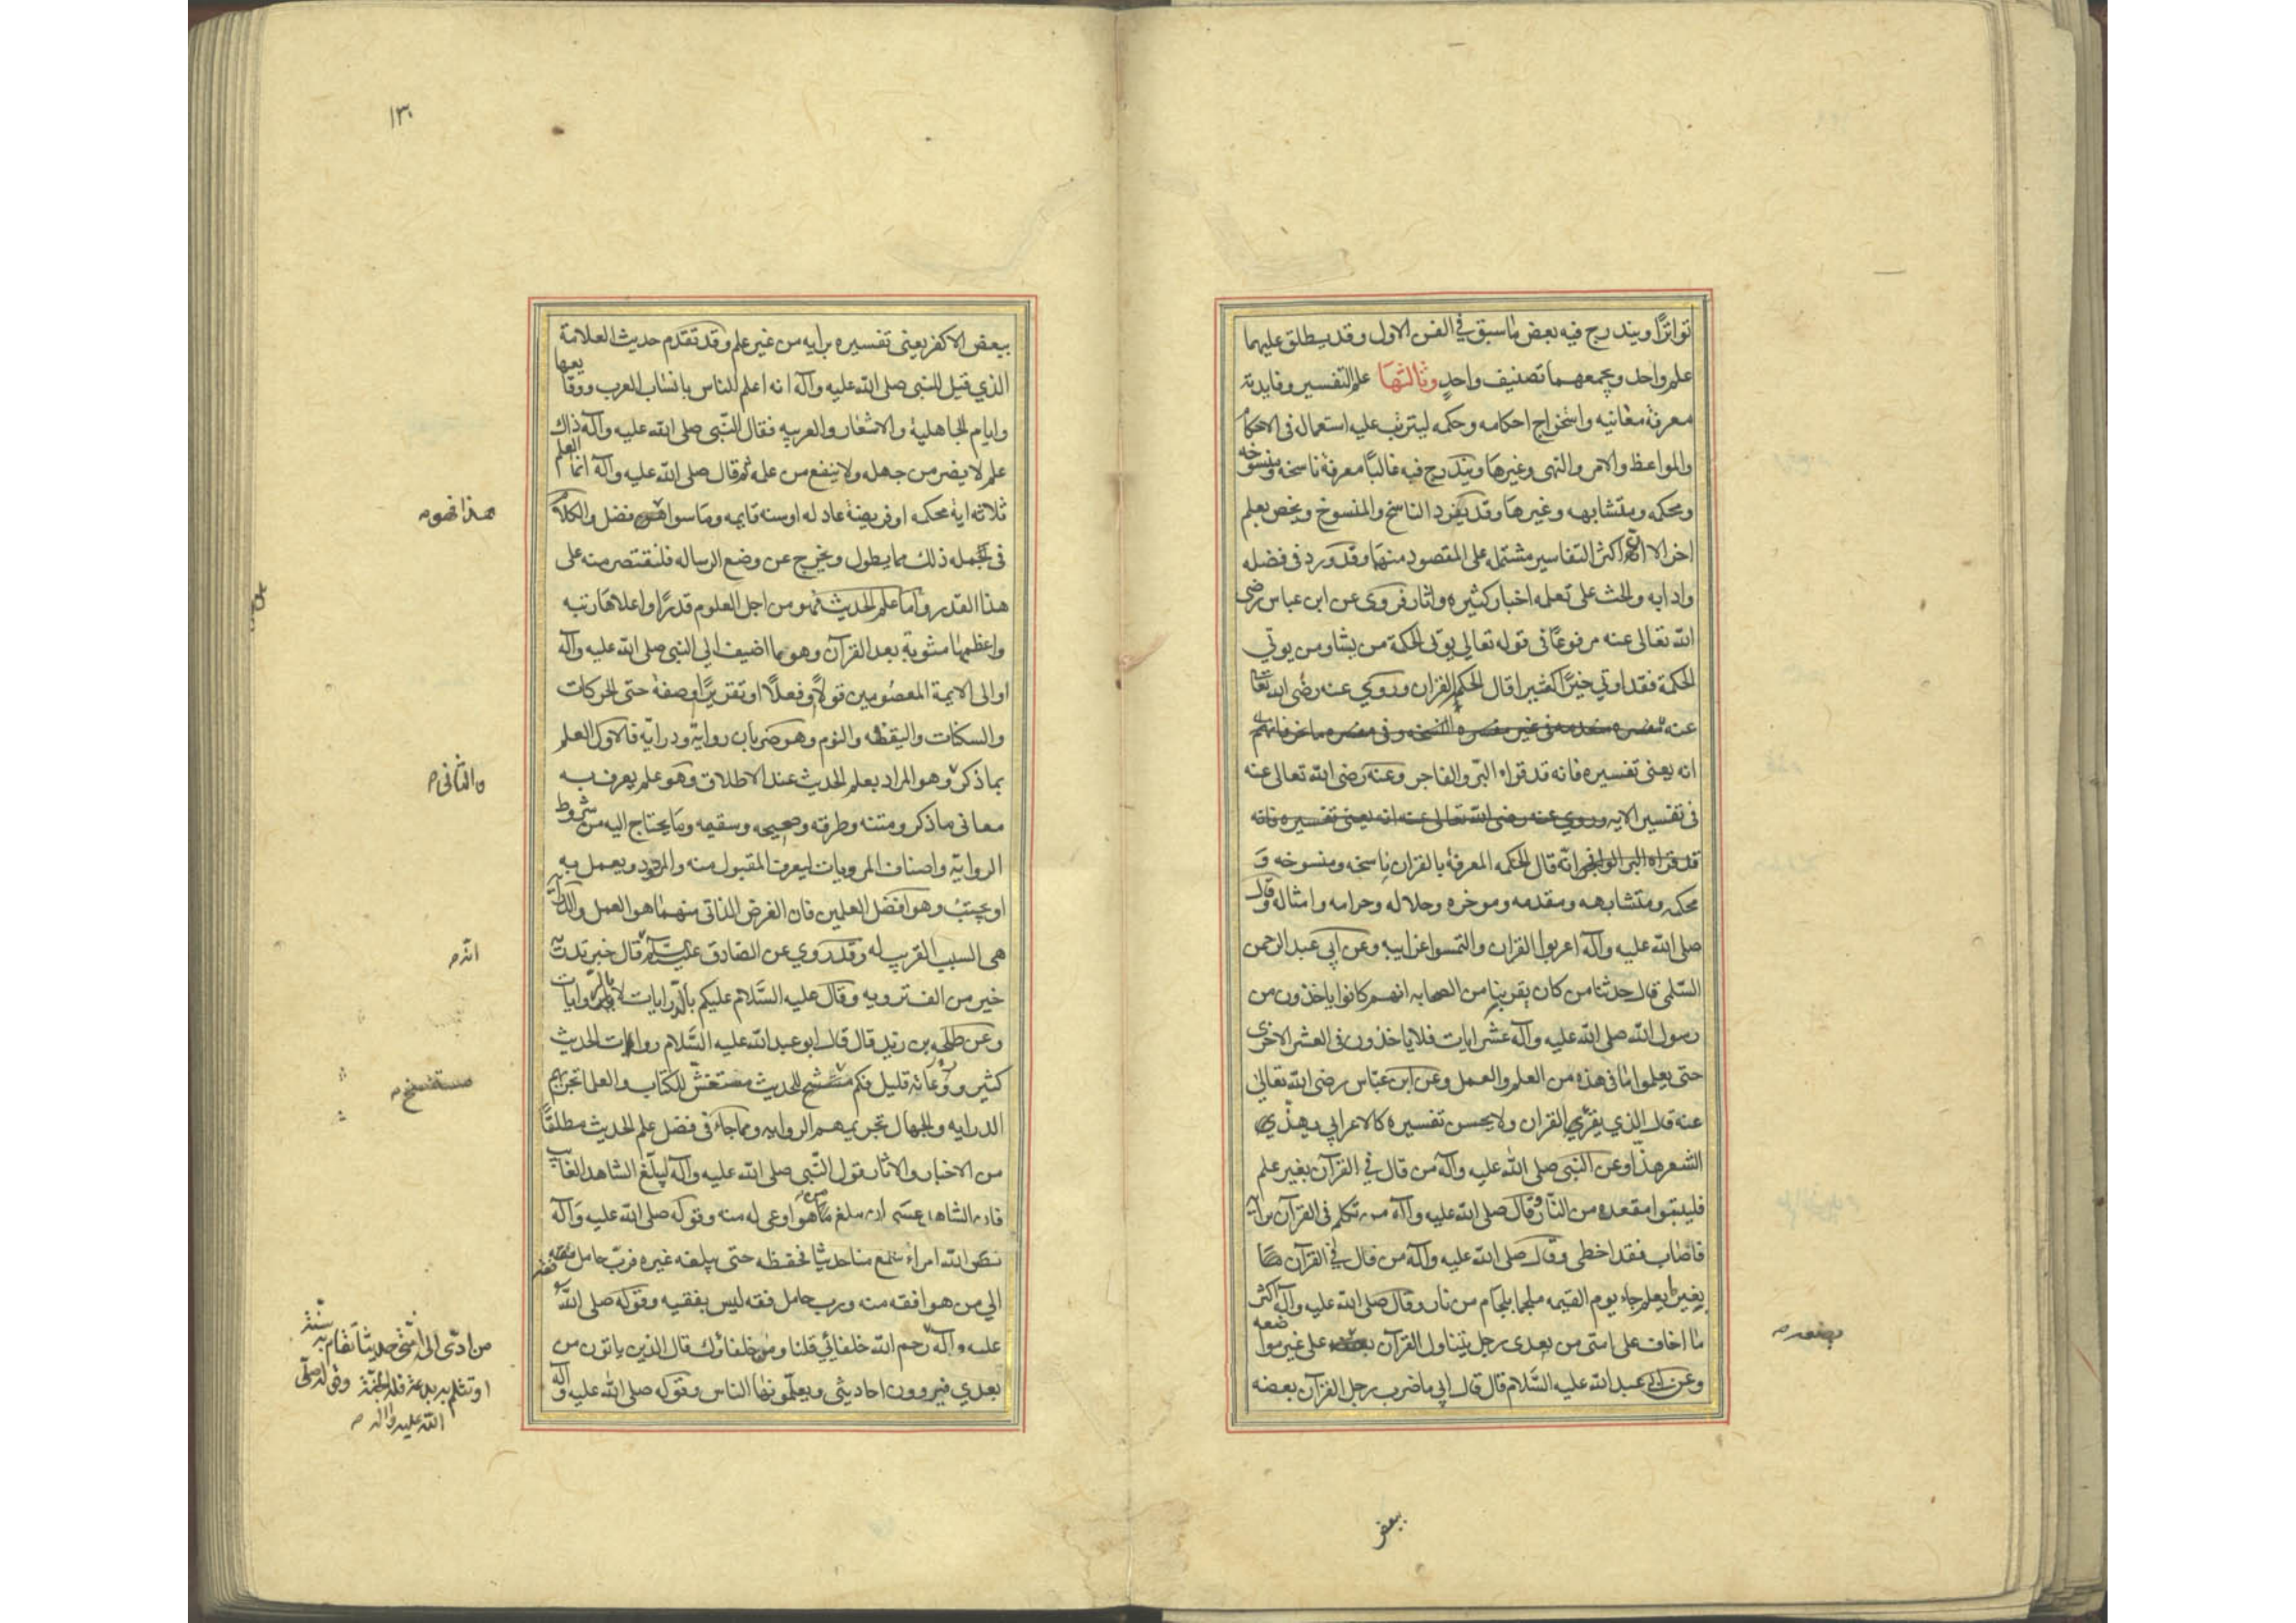 تواترًا ويندرج فيه بعض ما سبق في الفن الاول وقد يطلق عليهما
علم واحد ويجمعهما تصنيف واحدٍ وثالثها علم التفسير وفايدته
معرفة معانيه واستخراج احكامه وحكمه ليترتب عليه استعماله في الاحكام
والمواعظ والامر والنهى وغيرها ويندرج فيه غالبًا معرفة ناسخه ومنسوخه
ومحكمه ومتشابهه وغيرها وقد يفرد الناسخ والمنسوخ ويخص بعلم
اخر الا ان اكثر التفاسير مشتمل على المقصود منهما وقد ورد في فضله
وادابه والحث على تعلمه اخبار كثيره واثار فروى عن ابن عباس رضى
الله تعالى عنه مرفوعًا في قوله تعالى يؤتى الحكمة من يشاء ومن يوتي
الحكمة فقد اوتي خيرًا كثيرا قال الحكمة القران وروي عنه رضى الله تعالى
عنه
انه يعنى تفسيره فانه قد قراه البرّ والفاجر وعنه رضى الله تعالى عنه
في تفسير الايه وروي عنه رضى الله تعالى عنه انه يعنى تفسيره فانه
قد قراه البر والفاجر انه قال الحكمه المعرفة بالقران ناسخه ومنسوخه و
محكمه ومتشابهه ومقدمه وموخره وحلاله وحرامه وامثاله وقال
صلى الله عليه وآله اعربوا القران والتمسوا غرايبه وعن ابي عبد الرحمن
السلمى قال حدثنا من كان يقرينا من الصحابه انهم كانوا ياخذون من
رسول الله صلى الله عليه وآله عشر ايات فلا ياخذون في العشر الاخرى
حتى يعلموا ما في هذه من العلم والعمل وعن ابن عبّاس رضى الله تعالى
عنه قال الذي يقرئ القران ولا يحسن تفسيره كالاعرابي يهذي
الشعر هذا وعن النبى صلى الله عليه وآله من قال في القرآن بغير علم
فليتبوا مقعده من النّار وقال صلى الله عليه وآله من تكلم في القرآن برايه
فاصاب فقد اخطى وقال صلى الله عليه وآله من قال في القرآن
بغير ما يعلم جاء يوم القيمه ملجما بلجام من نار وقال صلى الله عليه وآله اكثر
ما اخاف على امتى من بعدى رجل يتناول القرآن على غير مواضعه
يضعه م
وعن ابى عبد الله عليه السَّلام قال قال ابي ما ضرب رجل القرآن بعضه
ببعض
١٣٠
ببعض الا كفر يعنى تفسيره برايه من غير علم وقد تقدم حديث العلامة
الذي قيل للنبى صلى الله عليه وآله انه اعلم الناس بانساب العرب ووقايعها
وايام الجاهلية والاشعار والعربيه فقال النّبى صلى الله عليه وآله ذاك
علم لا يضر من جهله ولا ينفع من علمه ثم قال صلى الله عليه وآله انما العلم
ثلاثه اية محكمه او فريضة عادله او سنه قايمه وما سواهن فضل والكلام
في جمله ذلك مما يطول ويخرج عن وضع الرساله فلنقتصر منه على
هذا القدر واما علم الحديث فهو من اجل العلوم قدرًا واعلاها رتبه
واعظمها مثوبة بعد القرآن وهو ما اضيف الى النبى صلى الله عليه وآله
او الى الايمة المعصومين قولًا وفعلًا او تقريرًا او صفة حتى الحركات
والسكنات واليقظه والنوم وهو ضربان رواية ودراية فالاول العلم
بما ذكر وهو المراد بعلم الحديث عند الاطلاق وهو علم يعرف به
والثانى م
معانى ما ذكر ومتنه وطرقه وصحيحه وسقيمه وما يحتاج اليه من شروط
الرواية واصناف المرويات ليعرف المقبول منه والمردود ويعمل به
او يجتنب وهو افضل العلمين فان الغرض الذاتى منهما هو العمل والدراية
هى السبب القريب له وقد روي عن الصادق عليه السلم قال خبر تدريه
انه م
خير من الف ترويه وقال عليه السَّلام عليكم بالدّرايات لا بالروايات
وعن طلحه بن زيد قال قال ابو عبد الله عليه السَّلام رواة الحديث
كثير ورعاته قليل فكم مستنصح للحديث مستغشّ للكتاب والعلما تجزيهم
الدرايه والجهال تجزيهم الروايه ومما جاء في فضل علم الحديث مطلقًا
من الاخبار والاثار قول النّبى صلى الله عليه وآله ليبلّغ الشاهد الغايب
فان الشاهد عسى ان يبلغ من هو اوعى له منه وقوله صلى الله عليه وآله
نضّر الله امراء سمع منا حديثا فحفظه حتى يبلغه غيره فربّ حامل فقه
الي من هو افقه منه ورب حامل فقه ليس بفقيه وقوله صلى الله
من ادّى الى امّتى حديثا تقام به سنّة
او تثلم به بدعة فله الجنّة وقوله صلّى
الله عليه وآله م
عليه وآله رحم الله خلفائي قلنا ومن خلفاؤك قال الذين ياتون من
بعدي فيروون احاديثي ويعلّمونها الناس وقوله صلى الله عليه وآله